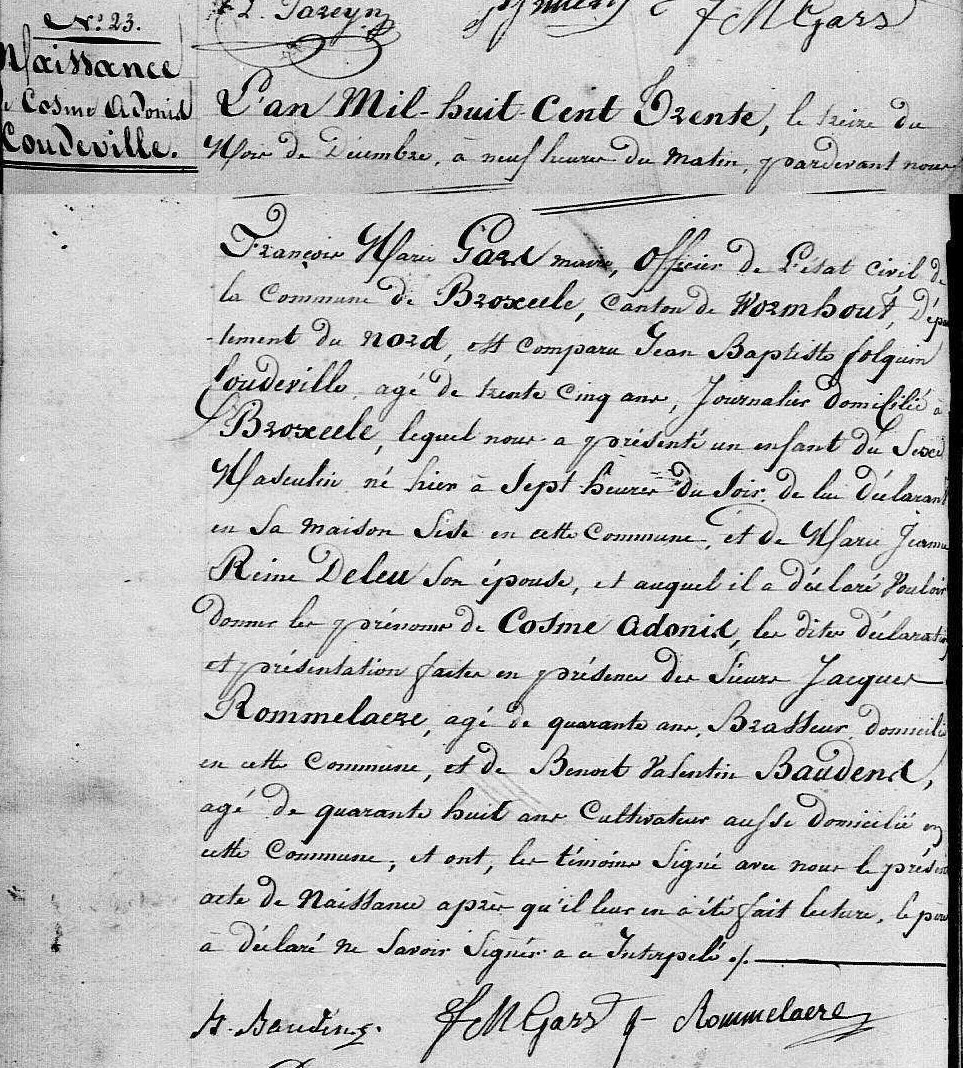 N.º 23.
Naissance
de Cosme Adonis
Coudeville.
F M Gars
L'an Mil-huit-Cent Trente, le treize du
Mois de Décembre, à neuf heures du matin, pardevant nous
François Marie Gars maire, Officier de L'état civil de
la Commune de Broxeele, canton de Wormhout, Dépar
-tement du Nord, est comparu Jean Baptiste folquin
Coudeville, agé de trente cinq ans, Journalier domicilié à
Broxeele, lequel nous a présenté un enfant du Sexe
Masculin né hier à Sept heures du Soir de lui déclarant
en Sa maison Sise en cette Commune, et de Marie Jeanne
Reine Deleu Son épouse, et auquel il a déclaré Vouloir
donner les prénoms de Cosme Adonis, les dites déclaration
et présentation faites en présence des Sieurs Jacques
Rommelaere, agé de quarante ans, Brasseur, domicilié
en cette Commune, et de Benoit Valentin Baudens,
agé de quarante huit ans Cultivateur aussi Domicilié en
cette Commune, et ont, les témoins Signé avec nous le présent
acte de Naissance après qu'il leur en a été fait lecture, le père
à déclaré ne Savoir Signer a ce Interpelé ./.
B. Baudens. F M Gars J Rommelaere